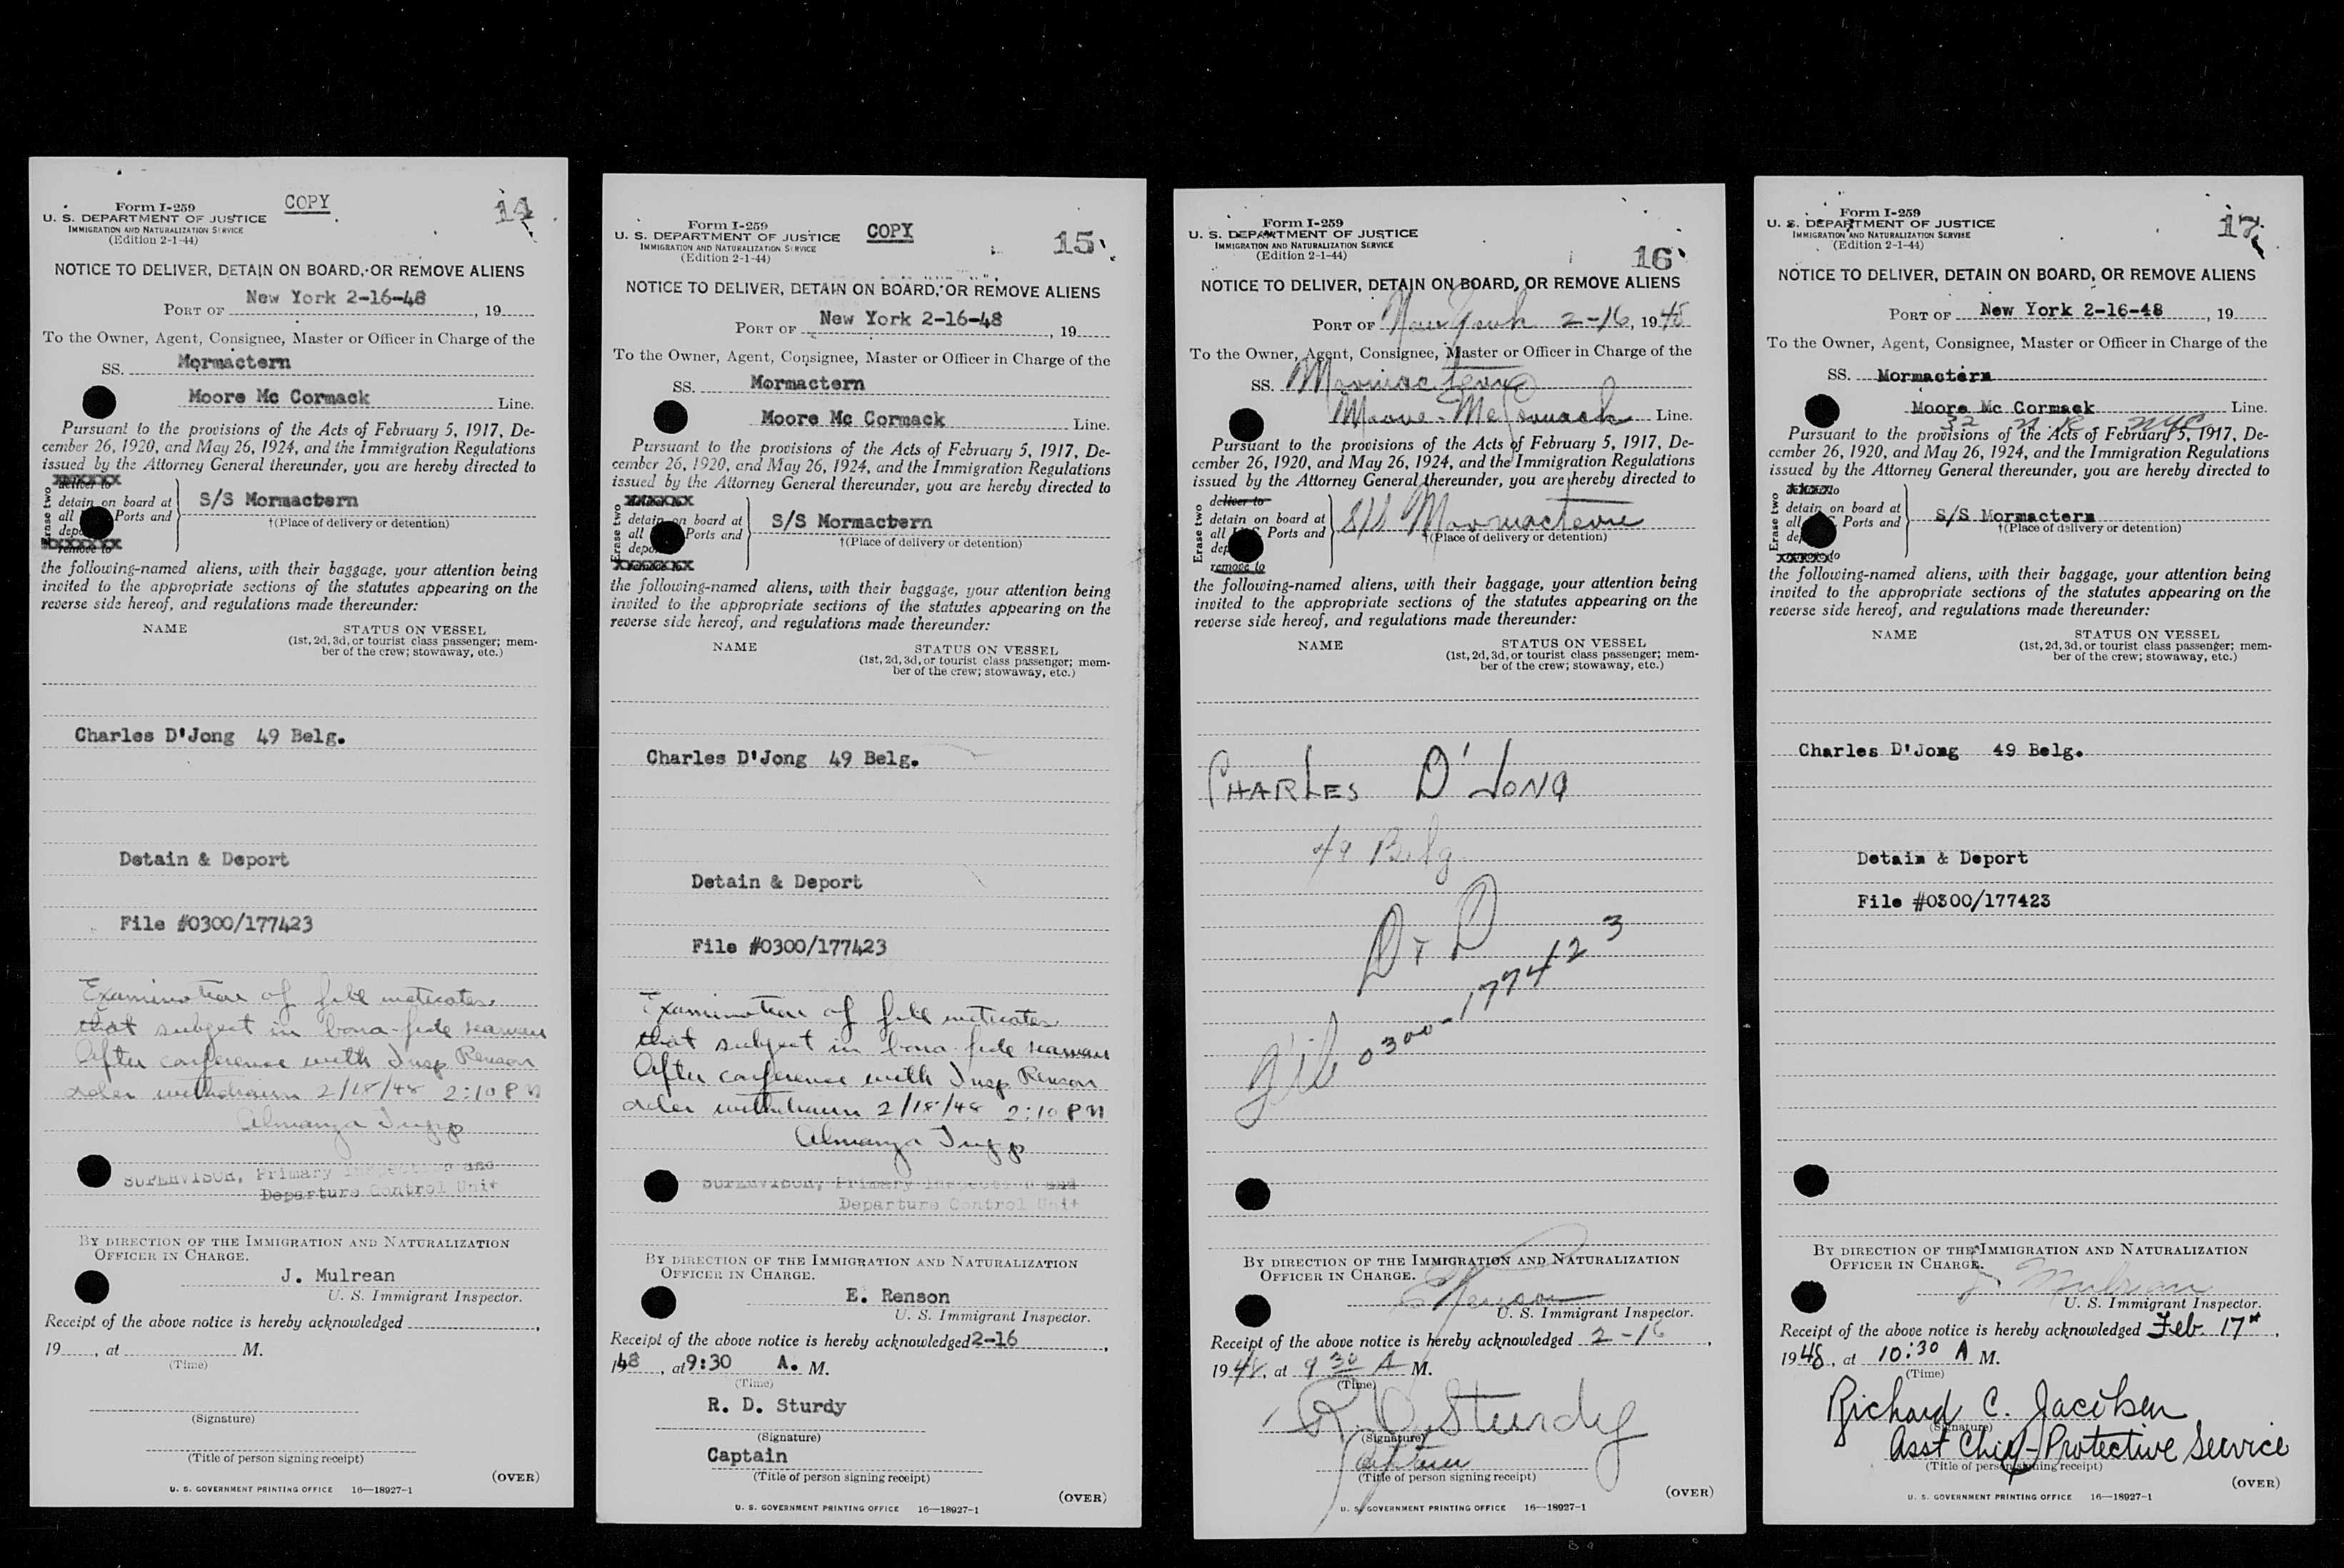 Form I-259
COPY
14
U. S. DEPARTMENT OF JUSTICE
IMMIGRATION AND NATURALIZATION SERVICE
(Edition 2-1-44)
NOTICE TO DELIVER, DETAIN ON BOARD, OR REMOVE ALIENS
PORT OF New York 2-16-48, 19
To the Owner, Agent, Consignee, Master or Officer in Charge of the
SS. Mormactern
Moore Mc Cormack Line.
Pursuant to the provisions of the Acts of February 5, 1917, De-
cember 26, 1920, and May 26, 1924, and the Immigration Regulations
issued by the Attorney General thereunder, you are hereby directed to
Erase two
deliver to
detain on board at
all Ports and
remove to
S/S Mormactern
†(Place of delivery or detention)
the following-named aliens, with their baggage, your attention being
invited to the appropriate sections of the statutes appearing on the
reverse side hereof, and regulations made thereunder:
NAME
STATUS ON VESSEL
(1st, 2d, 3d, or tourist class passenger; mem-
ber of the crew; stowaway, etc.)
Charles D'Jong 49 Belg.
Detain & Deport
File #0300/177423
Examination of file indicates
that subject is bona-fide seaman
After conference with Insp Renson
order withdrawn 2/18/48 2:10 PM
Almanza
SUPERVISOR, Primary Inspection and
Departure Control Unit
BY DIRECTION OF THE IMMIGRATION AND NATURALIZATION
OFFICER IN CHARGE.
J. Mulrean
U. S. Immigrant Inspector.
Receipt of the above notice is hereby acknowledged
19, at M.
(Time)
(Signature)
(Title of person signing receipt)
(OVER)
U. S. GOVERNMENT PRINTING OFFICE 16—18927-1
Form I-259
COPY
15
U. S. DEPARTMENT OF JUSTICE
IMMIGRATION AND NATURALIZATION SERVICE
(Edition 2-1-44)
NOTICE TO DELIVER, DETAIN ON BOARD, OR REMOVE ALIENS
PORT OF New York 2-16-48, 19
To the Owner, Agent, Consignee, Master or Officer in Charge of the
SS. Mormactern
Moore Mc Cormack Line.
Pursuant to the provisions of the Acts of February 5, 1917, De-
cember 26, 1920, and May 26, 1924, and the Immigration Regulations
issued by the Attorney General thereunder, you are hereby directed to
Erase two
detain on board at
all Ports and
remove to
S/S Mormactern
†(Place of delivery or detention)
the following-named aliens, with their baggage, your attention being
invited to the appropriate sections of the statutes appearing on the
reverse side hereof, and regulations made thereunder:
NAME
STATUS ON VESSEL
(1st, 2d, 3d, or tourist class passenger; mem-
ber of the crew; stowaway, etc.)
Charles D'Jong 49 Belg.
Detain & Deport
File #0300/177423
Examination of file indicates
that subject is bona fide seaman
After conference with Insp Renson
order withdrawn 2/18/48 2:10 PM
Almanza
SUPERVISOR, Primary Inspection and
Departure Control Unit
BY DIRECTION OF THE IMMIGRATION AND NATURALIZATION
OFFICER IN CHARGE.
E. Renson
U. S. Immigrant Inspector.
Receipt of the above notice is hereby acknowledged 2-16,
1948, at 9:30 A. M.
(Time)
R. D. Sturdy
(Signature)
Captain
(Title of person signing receipt)
(OVER)
U. S. GOVERNMENT PRINTING OFFICE 16—18927-1
Form I-259
16
U. S. DEPARTMENT OF JUSTICE
IMMIGRATION AND NATURALIZATION SERVICE
(Edition 2-1-44)
NOTICE TO DELIVER, DETAIN ON BOARD, OR REMOVE ALIENS
PORT OF New York 2-16, 1948
To the Owner, Agent, Consignee, Master or Officer in Charge of the
SS. Mormactern
Moore-McCormack Line.
Pursuant to the provisions of the Acts of February 5, 1917, De-
cember 26, 1920, and May 26, 1924, and the Immigration Regulations
issued by the Attorney General thereunder, you are hereby directed to
Erase two
deliver to
detain on board at
all Ports and
remove to
S/S Mormactern
†(Place of delivery or detention)
the following-named aliens, with their baggage, your attention being
invited to the appropriate sections of the statutes appearing on the
reverse side hereof, and regulations made thereunder:
NAME
STATUS ON VESSEL
(1st, 2d, 3d, or tourist class passenger; mem-
ber of the crew; stowaway, etc.)
CHARLES D'JONG
49 Belg
D + D
File 0300-177423
BY DIRECTION OF THE IMMIGRATION AND NATURALIZATION
OFFICER IN CHARGE.
E Renson
U. S. Immigrant Inspector.
Receipt of the above notice is hereby acknowledged 2-16,
1948, at 9 30 A M.
(Time)
R. D. Sturdy
(Signature)
Captain
(Title of person signing receipt)
(OVER)
U. S. GOVERNMENT PRINTING OFFICE 16—18927-1
Form I-259
17
U. S. DEPARTMENT OF JUSTICE
IMMIGRATION AND NATURALIZATION SERVICE
(Edition 2-1-44)
NOTICE TO DELIVER, DETAIN ON BOARD, OR REMOVE ALIENS
PORT OF New York 2-16-48, 19
To the Owner, Agent, Consignee, Master or Officer in Charge of the
SS. Mormactern
Moore Mc Cormack Line.
32 N. R. NYC
Pursuant to the provisions of the Acts of February 5, 1917, De-
cember 26, 1920, and May 26, 1924, and the Immigration Regulations
issued by the Attorney General thereunder, you are hereby directed to
Erase two
detain on board at
all Ports and
remove to
S/S Mormactern
†(Place of delivery or detention)
the following-named aliens, with their baggage, your attention being
invited to the appropriate sections of the statutes appearing on the
reverse side hereof, and regulations made thereunder:
NAME
STATUS ON VESSEL
(1st, 2d, 3d, or tourist class passenger; mem-
ber of the crew; stowaway, etc.)
Charles D'Jong 49 Belg.
Detain & Deport
File #0300/177423
BY DIRECTION OF THE IMMIGRATION AND NATURALIZATION
OFFICER IN CHARGE.
J. Mulrean
U. S. Immigrant Inspector.
Receipt of the above notice is hereby acknowledged Feb. 17th,
1948, at 10:30 A M.
(Time)
Richard C. Jacobsen
(Signature)
Asst Chief-Protective Service
(Title of person signing receipt)
(OVER)
U. S. GOVERNMENT PRINTING OFFICE 16—18927-1